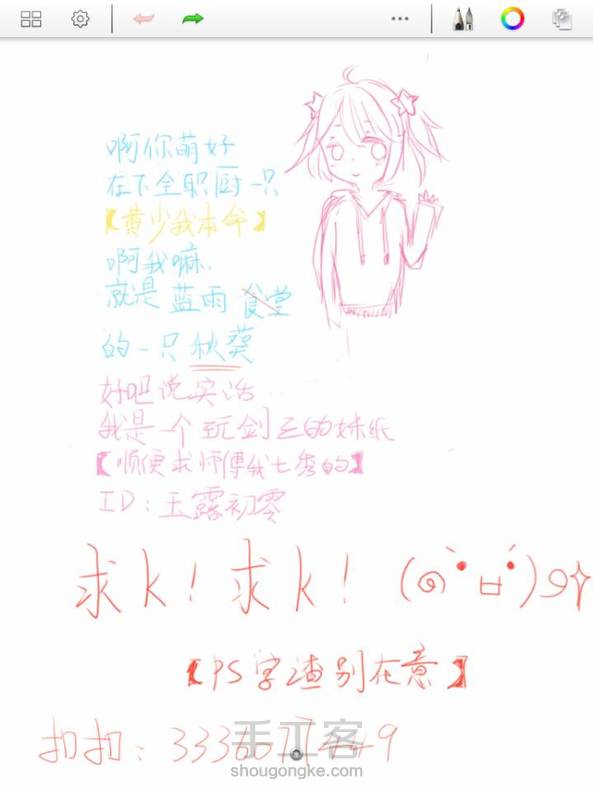 啊你萌好
在下全职厨一只
【黄少我本命】
啊我嘛.
就是蓝雨食堂
的一只秋葵
好吧说实话
我是一个玩剑三的妹纸
【顺便求师傅我七秀的】
ID:玉露初零
求k!求k!
【PS字渣别在意】
扣扣:
手工客
shougongke.com